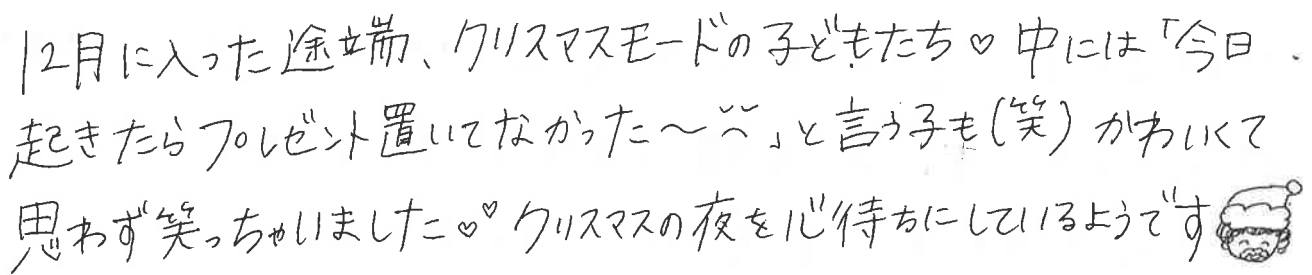 12月に入った途端、クリスマスモードの子どもたち♡中には「今日
起きたらプレゼント置いてなかった〜」と言う子も(笑)かわいくて
思わず笑っちゃいました♡♡クリスマスの夜を心待ちにしているようです